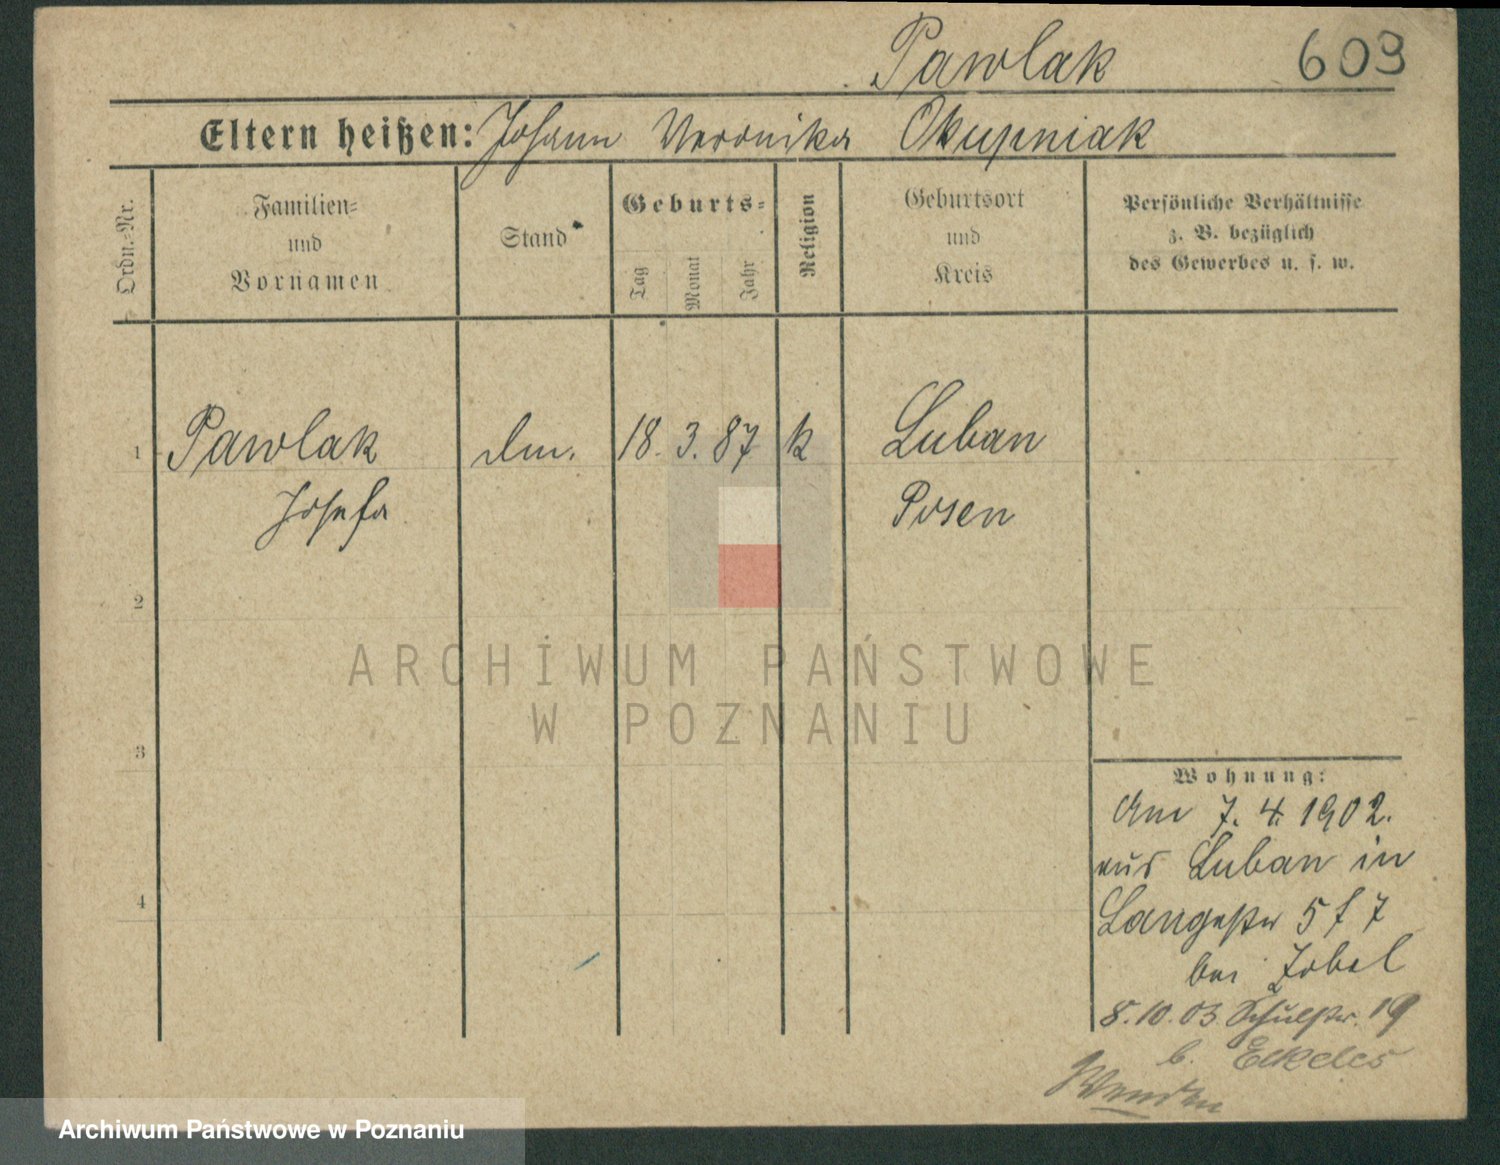 Pawlak 609
Eltern heißen: Johann Veronika Okupniak
Ordn.-Nr.
Familien-
und
Vornamen
Stand
Geburts-
Tag
Monat
Jahr
Religion
Geburtsort
und
Kreis
Persönliche Verhältnisse
z. B. bezüglich
des Gewerbes u. s. w.
1 Pawlak 18. 3. 87 k Luban
Josefa Posen
2
ARCHIWUM PAŃSTWOWE
W POZNANIU
3
Wohnung:
Am 7. 4. 1902.
aus Luban in
4
Langestr 5 f 7
bei Zobel
8.10.03. Schulstr. 19
b. Elkeles
Archiwum Państwowe w Poznaniu